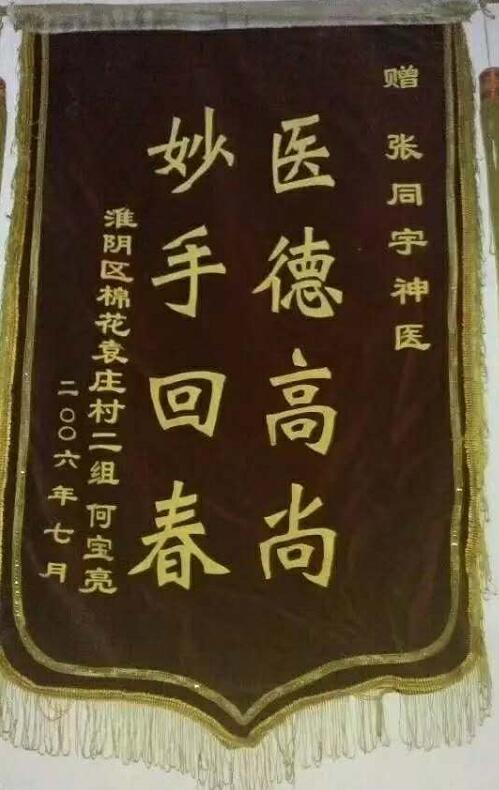 赠 张同字神医
医德高尚
妙手回春
淮阴区棉花袁庄村二组 何宝亮
二〇〇六年七月